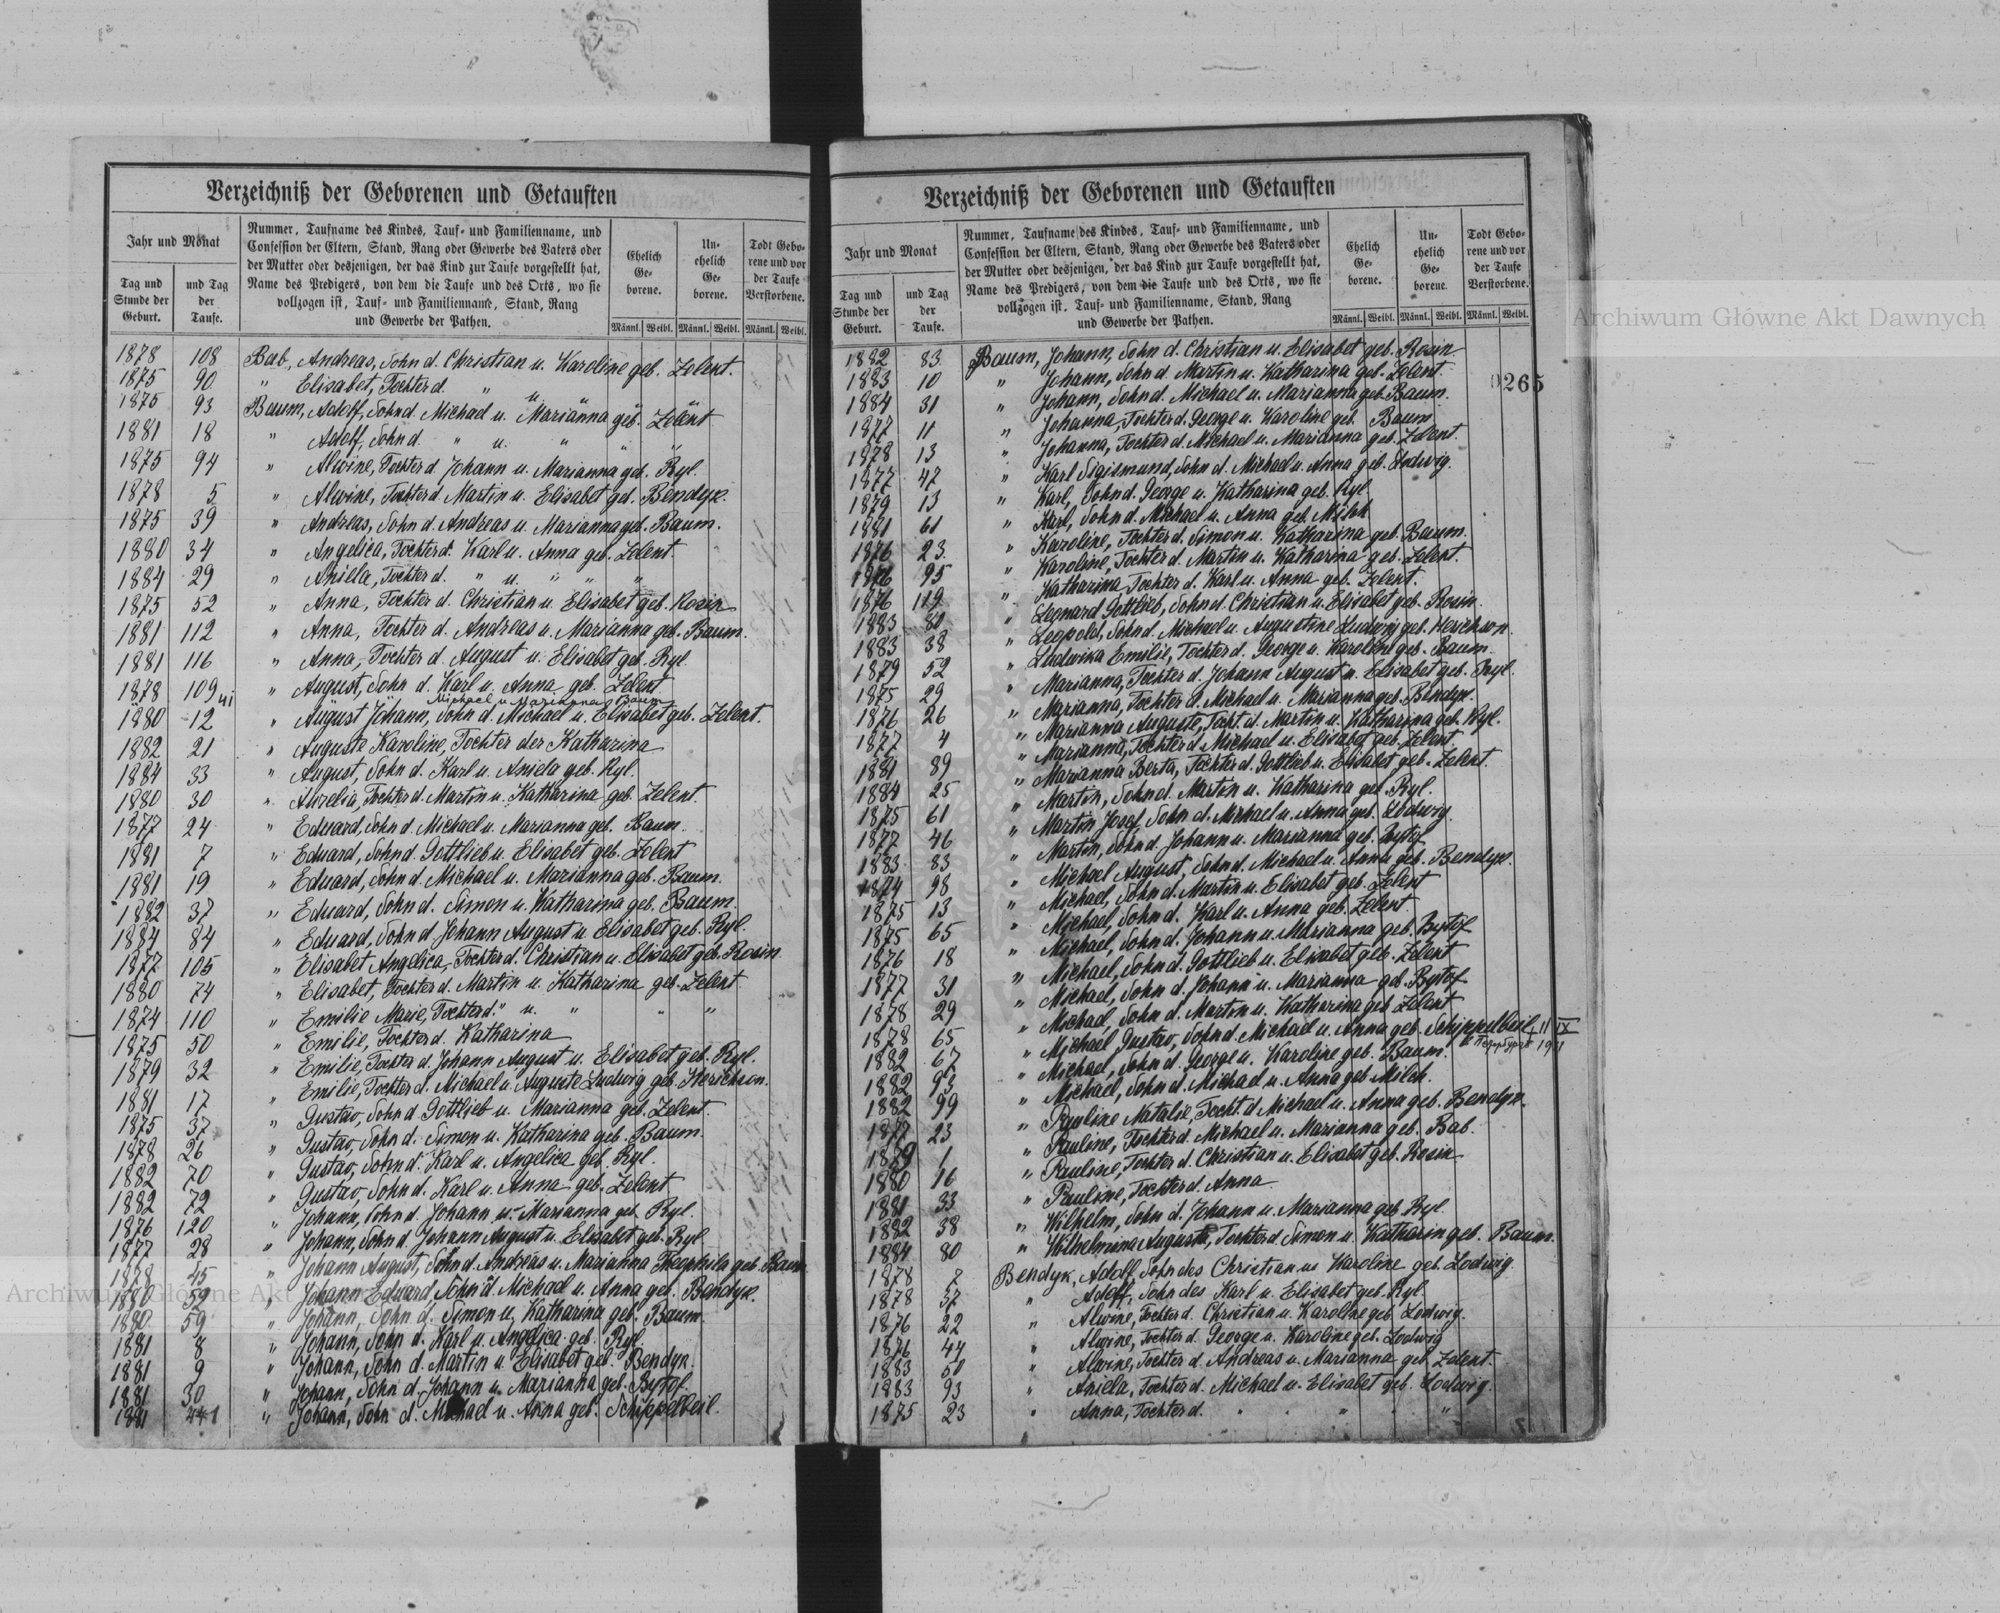 Verzeichniß der Geborenen und Getauften
Jahr und Monat
Tag und Stunde der Geburt.
und Tag der Taufe.
Nummer, Taufname des Kindes, Tauf- und Familienname, und
Confession der Eltern, Stand, Rang oder Gewerbe des Vaters oder
der Mutter oder desjenigen, der das Kind zur Taufe vorgestellt hat,
Name des Predigers, von dem die Taufe und des Orts, wo sie
vollzogen ist, Tauf- und Familienname, Stand, Rang
und Gewerbe der Pathen.
Ehelich Ge- borene.
Un- ehelich Ge- borene.
Todt Gebo- rene und vor der Taufe Verstorbene.
Männl. Weibl. Männl. Weibl. Männl. Weibl.
1878 108 Bab, Andreas, Sohn d. Christian u. Karoline geb. Zelent.
1875 90 " Elisabet, Tochter d. " u. " "
1875 93 Baum, Adolf, Sohn d. Michael u. Marianna geb. Zelent
1881 18 " Adolf, Sohn d. " u. " " "
1875 94 " Alwine, Tochter d. Johann u. Marianna geb. Ryl.
1878 5 " Alwine, Tochter d. Martin u. Elisabet geb. Bendyk.
1875 39 " Andreas, Sohn d. Andreas u. Marianna geb. Baum.
1880 34 " Angelica, Tochter d. Karl u. Anna geb. Zelent.
1884 29 " Aniela, Tochter d. " u. " " "
1875 52 " Anna, Tochter d. Christian u. Elisabet geb. Rosin
1881 112 " Anna, Tochter d. Andreas u. Marianna geb. Baum.
1881 116 " Anna, Tochter d. August u. Elisabet geb. Ryl.
1878 109 " August, Sohn d. Karl u. Anna geb. Zelent
Michael u. Marianna Baum
1880 12 " August Johann, Sohn d. Michael u. Elisabet geb. Zelent.
1882 21 " Auguste Karoline, Tochter der Katharina
1884 33 " August, Sohn d. Karl u. Aniela geb. Ryl.
1880 30 " Aurelia, Tochter d. Martin u. Katharina geb. Zelent.
1877 24 " Eduard, Sohn d. Michael u. Marianna geb. Baum.
1881 7 " Eduard, Sohn d. Gottlieb u. Elisabet geb. Zelent
1881 19 " Eduard, Sohn d. Michael u. Marianna geb. Baum.
1882 37 " Eduard, Sohn d. Simon u. Katharina geb. Baum.
1884 84 " Eduard, Sohn d. Johann August u. Elisabet geb. Ryl.
1877 105 " Elisabet Angelica, Tochter d. Christian u. Elisabet geb. Rosin
1880 74 " Elisabet, Tochter d. Martin u. Katharina geb. Zelent
1874 110 " Emilie Marie, Tochter d. " u. " " "
1875 50 " Emilie, Tochter d. Katharina
1879 32 " Emilie, Tochter d. Johann August u. Elisabet geb. Ryl.
1881 17 " Emilie, Tochter d. Michael u. Auguste Ludwig geb. Herichson.
1875 37 " Gustav, Sohn d. Gottlieb u. Marianna geb. Zelent.
1878 26 " Gustav, Sohn d. Simon u. Katharina geb. Baum.
1882 70 " Gustav, Sohn d. Karl u. Angelica geb. Ryl.
1882 72 " Gustav, Sohn d. Karl u. Anna geb. Zelent
1876 120 " Johann, Sohn d. Johann u. Marianna geb. Ryl.
1877 28 " Johann, Sohn d. Johann August u. Elisabet geb. Ryl
1878 45 " Johann August, Sohn d. Andreas u. Marianna Theophila geb. Baum
1880 59 " Johann Eduard, Sohn d. Michael u. Anna geb. Bendyk.
1880 59 " Johann, Sohn d. Simon u. Katharina geb. Baum.
1881 8 " Johann, Sohn d. Karl u. Angelica geb. Ryl
1881 9 " Johann, Sohn d. Martin u. Elisabet geb. Bendyk.
1881 30 " Johann, Sohn d. Johann u. Marianna geb. Bytof.
1881 441 " Johann, Sohn d. Michael u. Anna geb. Schippelbeil.
Verzeichniß der Geborenen und Getauften
Jahr und Monat
Tag und Stunde der Geburt.
und Tag der Taufe.
Nummer, Taufname des Kindes, Tauf- und Familienname, und
Confession der Eltern, Stand, Rang oder Gewerbe des Vaters oder
der Mutter oder desjenigen, der das Kind zur Taufe vorgestellt hat,
Name des Predigers, von dem die Taufe und des Orts, wo sie
vollzogen ist, Tauf- und Familienname, Stand, Rang
und Gewerbe der Pathen.
Ehelich Ge- borene.
Un- ehelich Ge- borene.
Todt Gebo- rene und vor der Taufe Verstorbene.
Männl. Weibl. Männl. Weibl. Männl. Weibl.
265
1882 83 Baum, Johann, Sohn d. Christian u. Elisabet geb. Rosin
1883 10 " Johann, Sohn d. Martin u. Katharina geb. Zelent
1884 31 " Johann, Sohn d. Michael u. Marianna geb. Baum.
1877 11 " Johanna, Tochter d. George u. Karoline geb. Baum
1878 13 " Johanna, Tochter d. Michael u. Marianna geb. Zelent.
1877 47 " Karl Sigismund, Sohn d. Michael u. Anna geb. Lodwig.
1879 13 " Karl, Sohn d. George u. Katharina geb. Ryl
1881 61 " Karl, Sohn d. Michael u. Anna geb. Milch
1876 23 " Karoline, Tochter d. Simon u. Katharina geb. Baum.
1876 95 " Karoline, Tochter d. Martin u. Katharina geb. Zelent.
1876 119 " Katharina, Tochter d. Karl u. Anna geb. Zelent.
1883 81 " Leonard Gottlieb, Sohn d. Christian u. Elisabet geb. Rosin.
1883 38 " Leopold, Sohn d. Michael u. Augustine Ludwig geb. Herichson.
1879 52 " Ludwika Emilie, Tochter d. George u. Karoline geb. Baum.
1875 29 " Marianna, Tochter d. Johann August u. Elisabet geb. Ryl.
1876 26 " Marianna, Tochter d. Michael u. Marianna geb. Bendyk.
1877 4 " Marianna Auguste, Tocht. d. Martin u. Katharina geb. Ryl.
1881 89 " Marianna, Tochter d. Michael u. Elisabet geb. Zelent
1884 25 " Marianna Berta, Tochter d. Gottlieb u. Elisabet geb. Zelent.
1875 61 " Martin, Sohn d. Martin u. Katharina geb. Ryl.
1877 46 " Martin Josef, Sohn d. Michael u. Anna geb. Lodwig.
1883 83 " Martin, Sohn d. Johann u. Marianna geb. Bytof
1874 98 " Michael August, Sohn d. Michael u. Anna geb. Bendyk.
1875 13 " Michael, Sohn d. Martin u. Elisabet geb. Zelent
1875 65 " Michael, Sohn d. Karl u. Anna geb. Zelent
1876 18 " Michael, Sohn d. Johann u. Marianna geb. Bytof
1877 31 " Michael, Sohn d. Gottlieb u. Elisabet geb. Zelent
1878 29 " Michael, Sohn d. Johann u. Marianna geb. Bytof
1878 65 " Michael, Sohn d. Martin u. Katharina geb. Zelent
1882 67 " Michael Gustav, Sohn d. Michael u. Anna geb. Schippelbeil, 11 IX
1882 93 " Michael, Sohn d. George u. Karoline geb. Baum.
1882 99 " Michael, Sohn d. Michael u. Anna geb. Milch.
1877 23 " Pauline Natalie, Tocht. d. Michael u. Anna geb. Bendyk.
1879 1 " Pauline, Tochter d. Michael u. Marianna geb. Bab.
1880 16 " Pauline, Tochter d. Christian u. Elisabet geb. Rosin
1881 33 " Pauline, Tochter d. Anna
1882 38 " Wilhelm, Sohn d. Johann u. Marianna geb. Ryl
1884 80 " Wilhelmina Auguste, Tochter d. Simon u. Katharin geb. Baum.
1878 7 Bendyk, Adolf, Sohn des Christian u. Karoline geb. Lodwig
1878 37 " Adolf, Sohn des Karl u. Elisabet geb. Ryl
1876 22 " Alwine, Tochter d. Christian u. Karoline geb. Lodwig.
1876 44 " Alwine, Tochter d. George u. Karoline geb. Lodwig
1883 50 " Alwine, Tochter d. Andreas u. Marianna geb. Zelent.
1883 93 " Aniela, Tochter d. Michael u. Elisabet geb. Lodwig.
1875 23 " Anna, Tochter d. " " " "
Archiwum Główne Akt Dawnych
Archiwum Główne Akt Dawnych